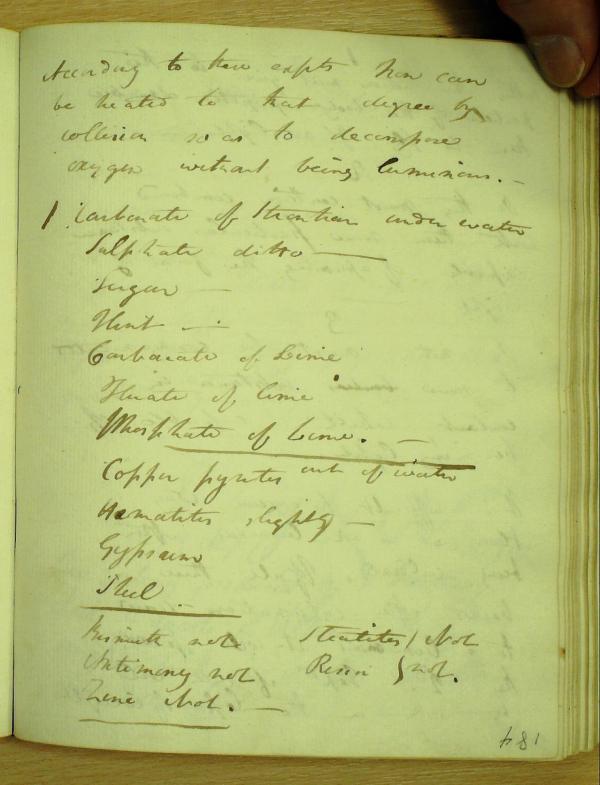 According to these expts Iron can
be heated to that degree by
collision so as to decompose
oxygen without being luminous. —
1 Carbonate of Strontian under water
Sulphate ditto —
Sugar —
Flint —
Carbonate of Lime
Fluate of lime
Phosphate of Lime. —
Copper pyrites out of water
Hematites slightly —
Gypsum
Steel
Bismuth not
Steatites } Not
Antimony not
Resin } not.
Zinc Not. —
184